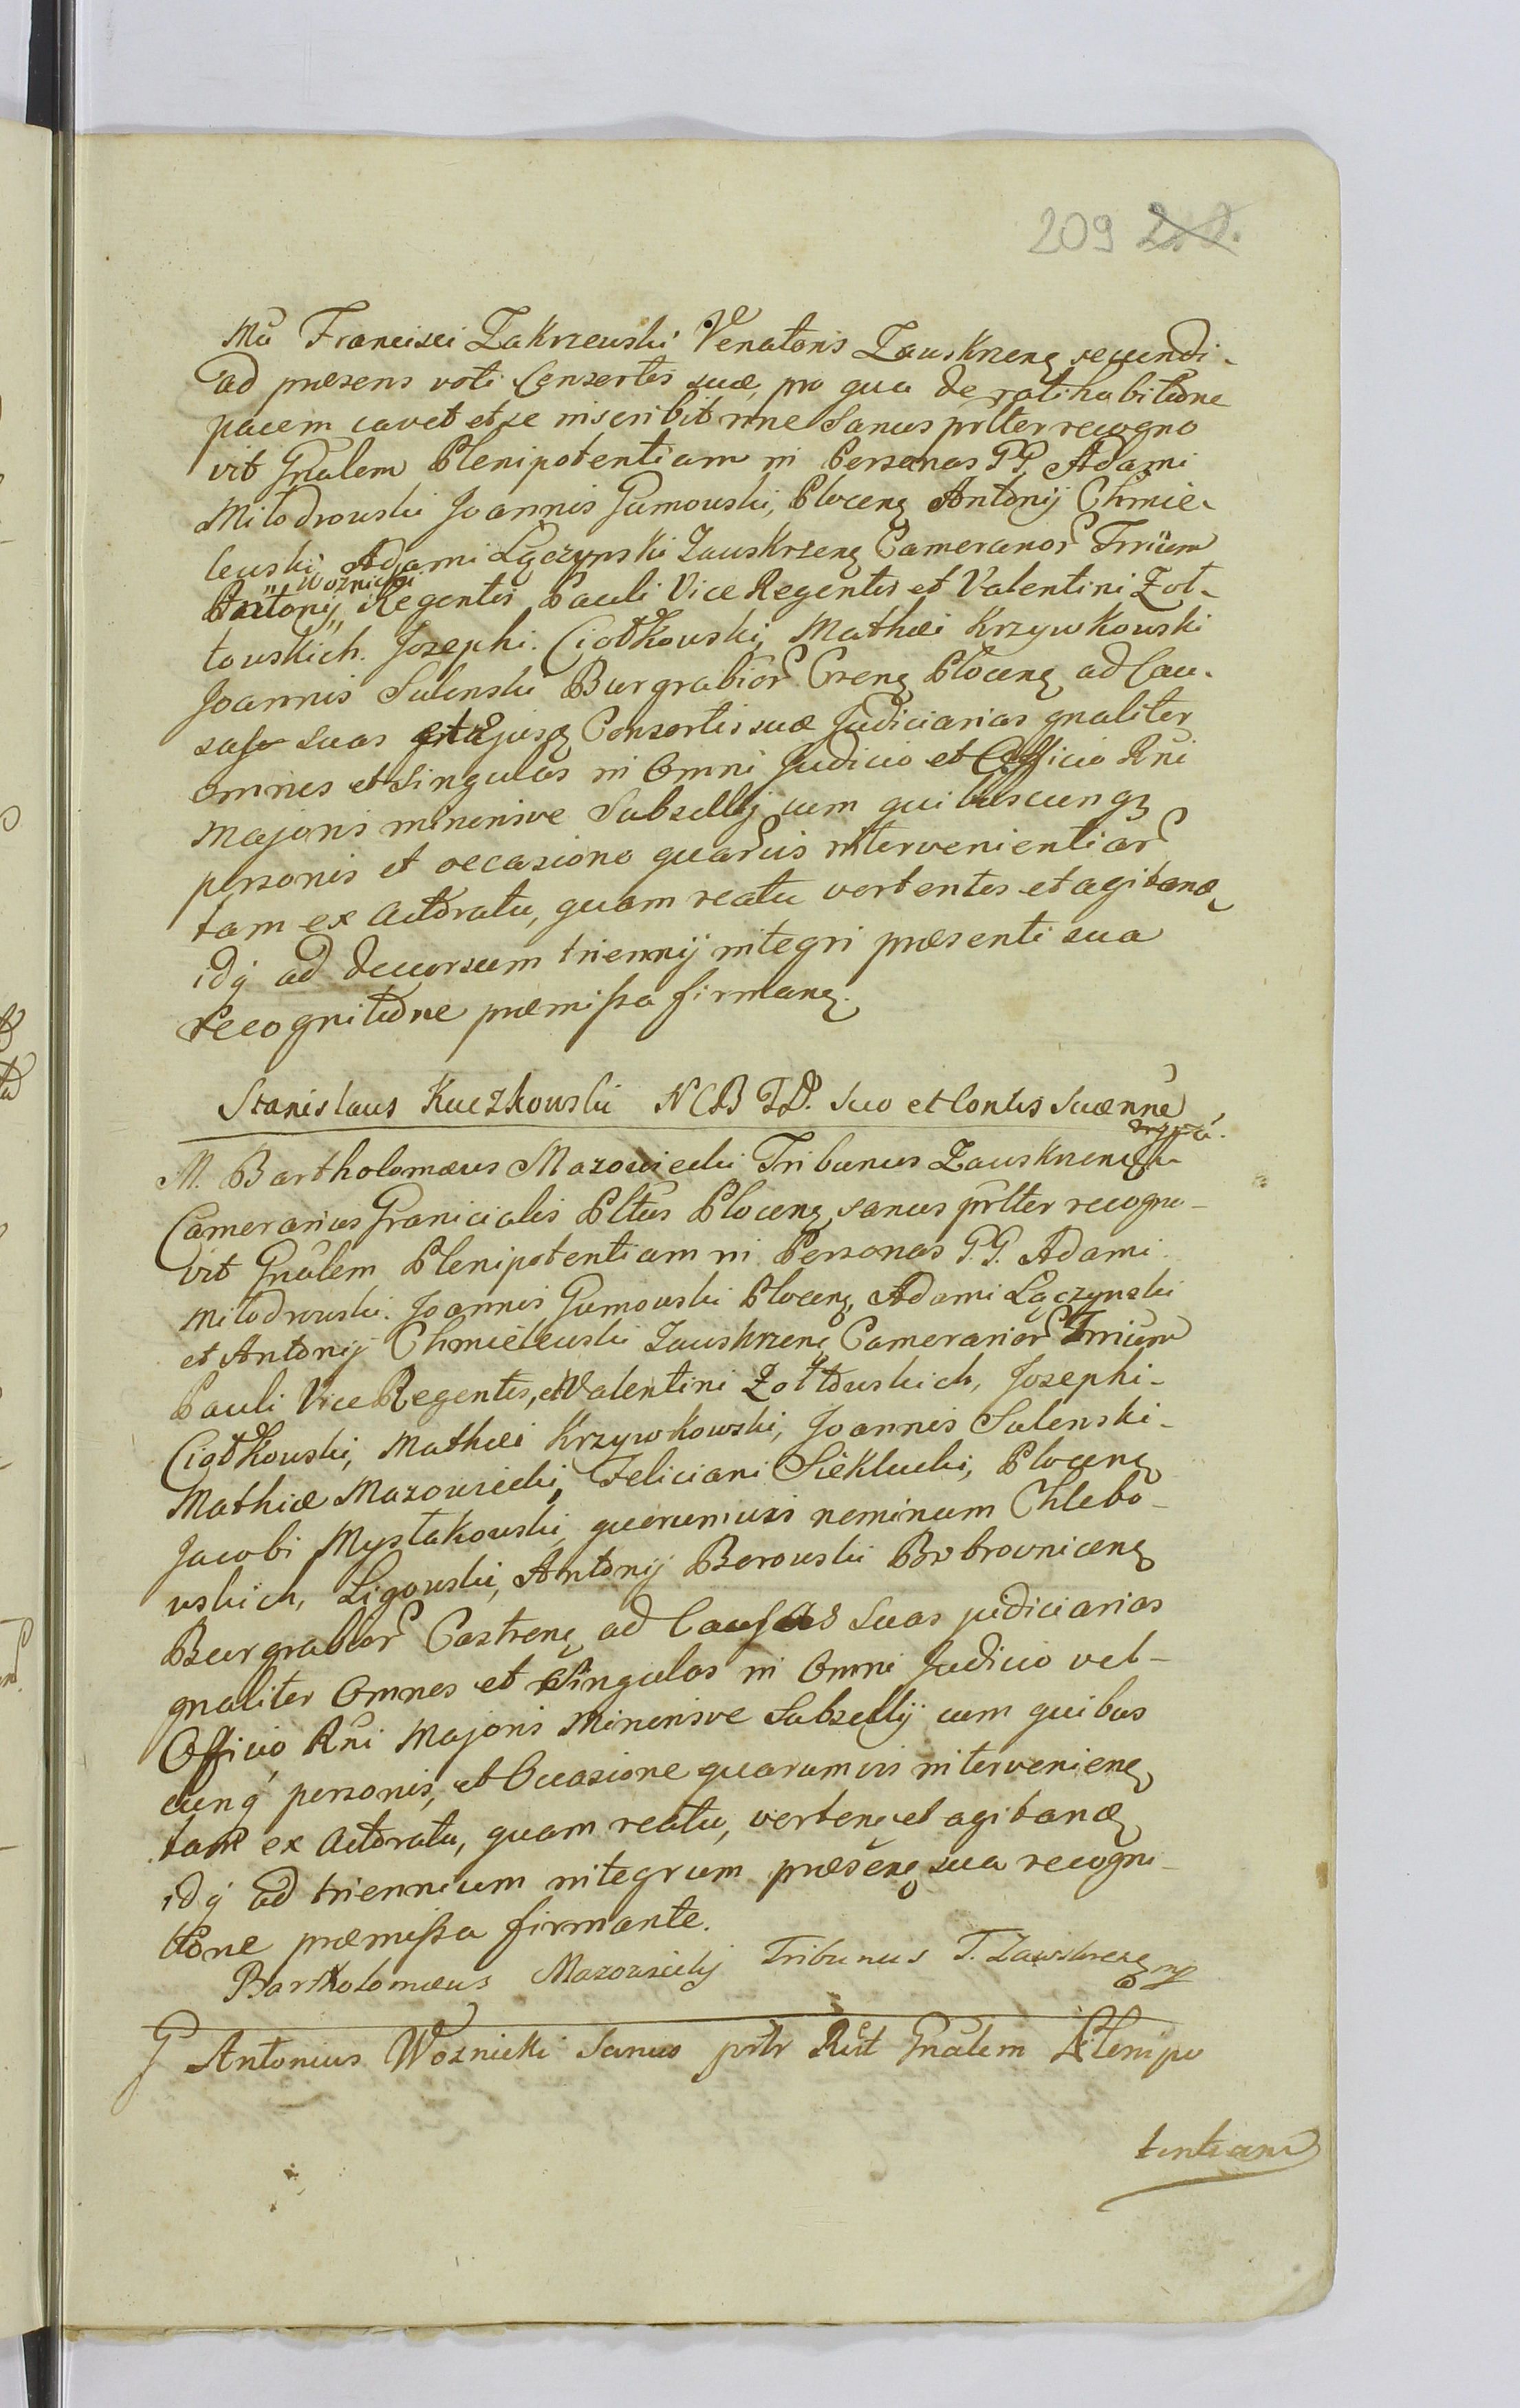 209 210.
Mci Francisci Zakrzewski Venatoris Zauskrzenę secundi
ad præsens voti Consortis suæ, pro qua de ratihabitione
pacem cavet et se inscribit nne Sanus prlter recogno
vit Gnalem Plenipotentiam in Personas GG Adami
Miłodrowski Joannis Gumowski, Plocenę Antonij Chmie-
lewski, Adami Łączynski Zauskrzenę Camerarior Trrium
Antonij Woznicki Regentis Pauli Vice Regentis et Valentini Zoł-
towskich. Josephi. Ciołkowski, Mathei Krzywkowski
Joannis Sulenski Burgrabior Crenę Plocenę ad Cau-
sas suas et ejusq Consortis suæ Judiciarias gnaliter
omnes et Singulas in Omni Judicio et Officio Rni
Majoris minorisve Subsellij cum quibuscunqz
personis et occasione quarvis intervenientiar
tam ex actoratu, quam reatu vertentes et agitanđ
idq ad decursum triennij integri præsenti sua
recognitione præmissa firmanę.
Stanislaus Kuczkowski NCB TD. suo et Contis Suæ nne
M. Bartholomæus Mazowiecki Tribunus Zauskrzenę
Camerarius Granicialis Pltus Plocenę, sanus prlter recogno-
vit Gnalem Plenipotentiam in Personas G.G. Adami
Miłodrowski. Joannis Gumowski Plocenę, Adami Łączynski
et Antonij Chmielewski Zauskrzenę Camerarior Trrium
Pauli Vice Regentis, et Valentini Zołtowskich, Josephi-
Ciołkowski, Mathei Krzywkowski, Joannis Sulenski-
Mathiæ Mazowiecki, Feliciani Sieklucki, Plocenę
Jacobi Mystkowski, quorumvis neminum Chlebo-
wskich, Ligowski, Antonij Borowski Bobrownicenę
Burgrabior Castrenę ad Causas Suas judiciarias
gnaliter Omnes et Singulas in Omni Judicio vel-
Officio Rni Majoris Minorisve Subsellij cum quibus
cunq personis, et Occasione quarumvis intervenienę
tam ex actoratu, quam reatu, vertenę et agitanđ
idq ad triennium integrum præsenę sua recogni-
tione præmissa firmante.
Bartholomæus Mazowiecky Tribunus T. Zawskrzenę mp
G Antonius Woznicki Sanus prltr Rcit Gnalem Plenipo
tentiam